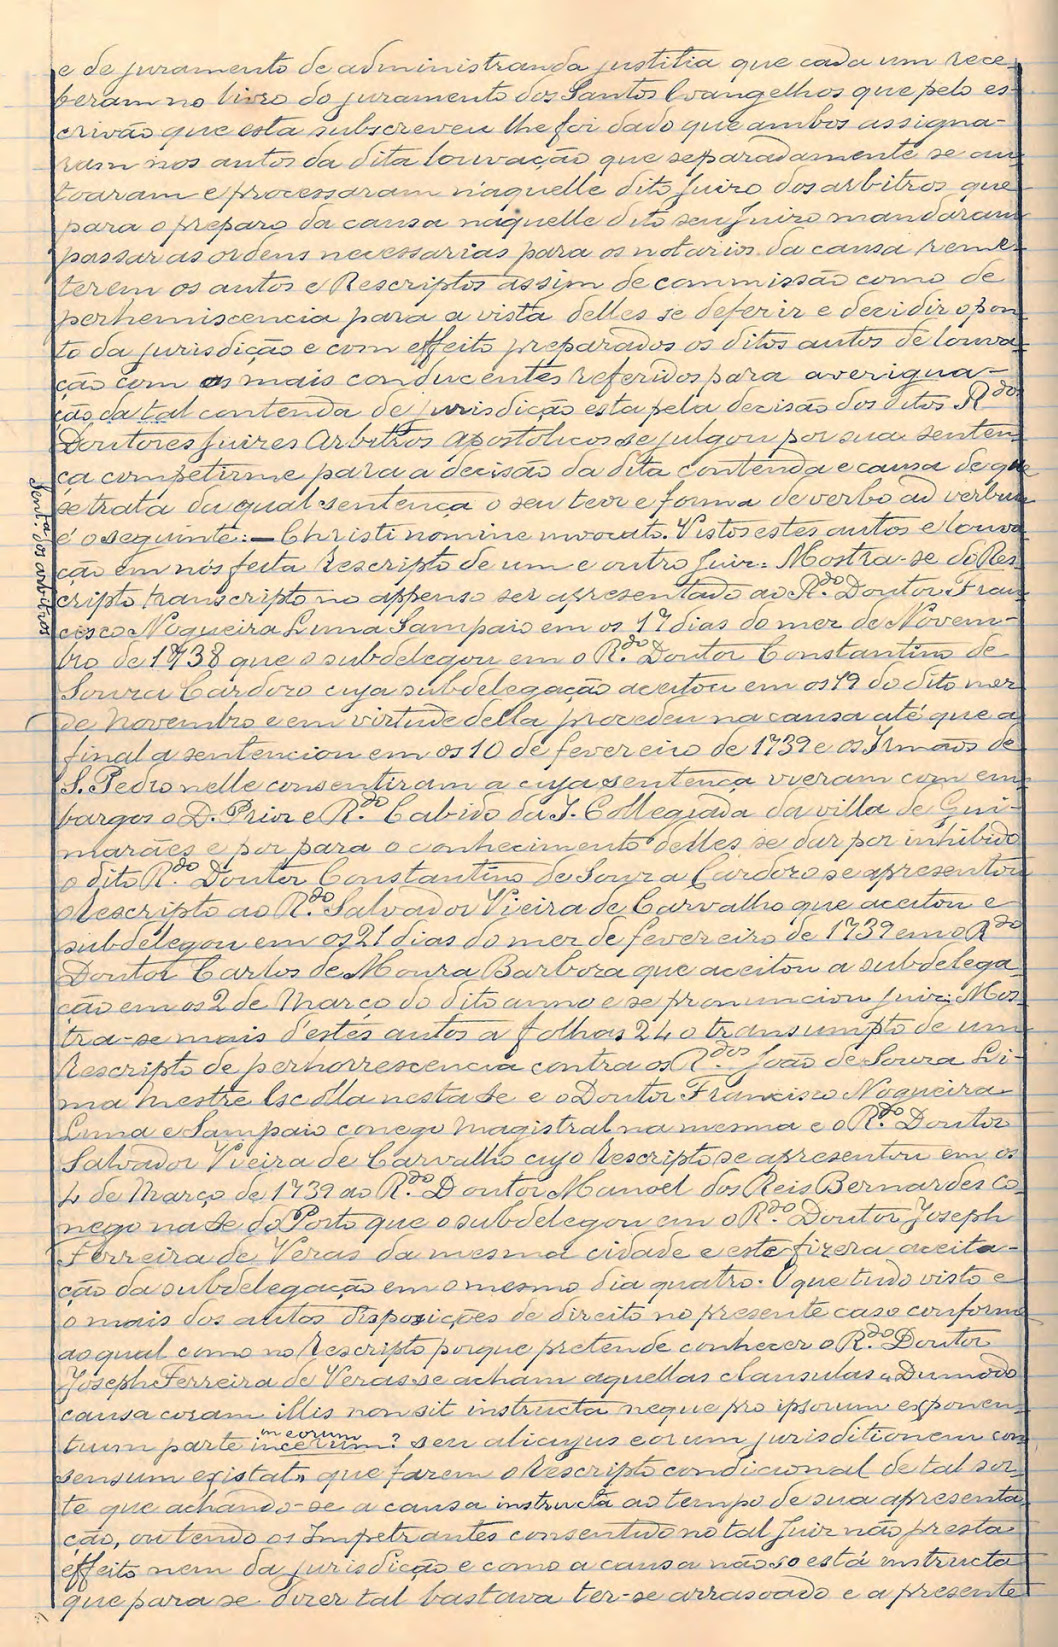 e de juramento de administranda justitia que cada um rece-
beram no livro do juramento dos Santos Evangelhos que pelo es-
crivão que esta subscreveu lhe foi dado que ambos assigna-
ram nos autos da dita louvação que separadamente se au-
toaram e processaram n'aquelle dito Juizo dos arbitros que
para o preparo da causa naquelle dito seu Juizo mandaram
passar as ordens necessarias para os notarios da causa reme-
terem os autos e Rescriptos assim de commissão como de
perhemiscencia para a vista delles se deferir e decidir o pon-
to da jurisdição e com effeito preparados os ditos autos de louva-
ção com os mais conducentes referidos para averigua-
ção da tal contenda de jurisdição esta pela decisão dos ditos R.dos
Doutores Juizes Arbitros Apostolicos se julgou por sua senten-
ça competirme para a decisão da dita contenda e causa de que
se trata da qual sentença o seu teor e forma de verbo ad verbum
é o seguinte: — Christi nomine invocato. Vistos estes autos e louva-
Sent.ça dos arbitros
ção em nós feita Rescripto de um e outro Juiz: Mostra-se do Res-
cripto transcripto no appenso ser apresentado ao R.do Doutor Fran-
cisco Nogueira Luna Sampaio em os 17 dias do mez de Novem-
bro de 1738 que o subdelegou em o R.do Doutor Constantino de
Souza Cardozo cuja subdelegação aceitou em os 19 do dito mez
de Novembro e em virtude della procedeu na causa até que a
final a sentenciou em os 10 de fevereiro de 1739 e os Irmãos de
S. Pedro nelle consentiram a cuja sentença vieram com em-
bargos o D. Prior e R.do Cabido da I. Collegiada da villa de Gui-
marães e por para o conhecimento delles se dar por inhibido
o dito R.do Doutor Constantino de Souza Cardozo se apresentou
o Rescripto ao R.do Salvador Vieira de Carvalho que aceitou e
subdelegou em os 21 dias do mez de fevereiro de 1739 em o R.do
Doutor Carlos de Moura Barboza que aceitou a subdelega-
ção em os 2 de Março do dito anno e se pronunciou Juiz: Mos-
tra-se mais d'estes autos a folhas 24 o transumpto de um
Rescripto de perhorrescencia contra os R.dos João de Souza Li-
ma Mestre Escolla nesta Se e o Doutor Francisco Nogueira
Luna e Sampaio conego Magistral na mesma e o R.do Doutor
Salvador Vieira de Carvalho cujo Rescripto se apresentou em os
4 de Março de 1739 ao R.do Doutor Manoel dos Reis Bernardes Co-
nego na Se do Porto que o subdelegou em o R.do Doutor Joseph
Ferreira de Veras da mesma cidade e este fizera aceita-
ção da subdelegação em o mesmo dia quatro. O que tudo visto e
o mais dos autos disposições de direito no presente caso conforme
ao qual como no Rescripto porque pretende conhecer o R.do Doutor
Joseph Ferreira de Veras se acham aquellas clausulas "Dummodo
causa coram illis non sit instructa neque pro ipsorum exponen-
in eorum
tium parte incerum? seu alicujus eorum jurisditionem con-
sensum existat" que fazem o Rescripto condicional de tal sor-
te que achando-se a causa instructa ao tempo de sua apresenta-
ção, ou tendo os Impetrantes consentido no tal Juiz não presta
effeito nem da jurisdição e como a causa não so está instructa
que para se dizer tal bastava ter-se arrasoado e a presente